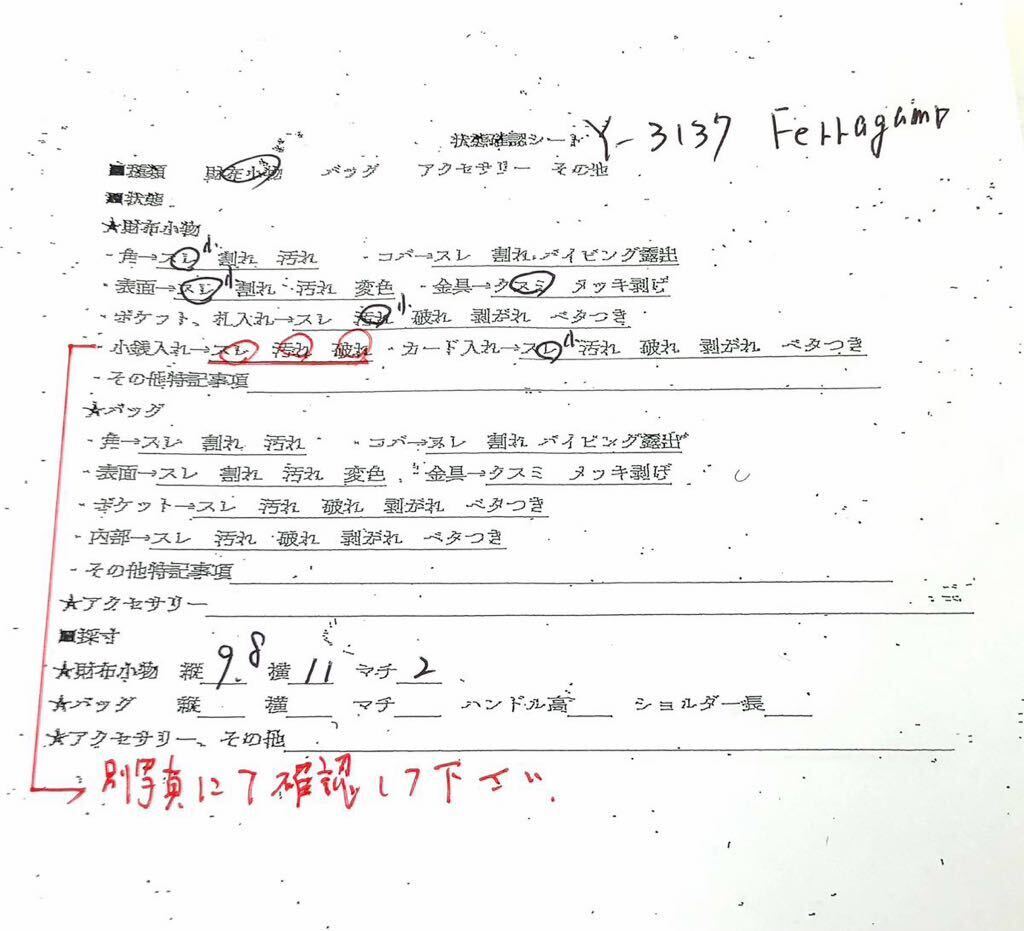 状態確認シート Y-3137 Ferragamo
■種類 財布小物 バッグ アクセサリー その他
■状態
★財布小物
・角→スレ小 割れ 汚れ ・コバ→スレ 割れ パイピング露出
・表面→スレ小 割れ 汚れ 変色 ・金具→クスミ メッキ剥げ
・ポケット、札入れ→スレ 汚れ小 破れ 剥がれ ベタつき
・小銭入れ→スレ 汚れ 破れ ・カード入れ→スレ小 汚れ 破れ 剥がれ ベタつき
・その他特記事項
★バッグ
・角→スレ 割れ 汚れ ・コバ→スレ 割れ パイピング露出
・表面→スレ 割れ 汚れ 変色 ・金具→クスミ メッキ剥げ
・ポケット→スレ 汚れ 破れ 剥がれ ベタつき
・内部→スレ 汚れ 破れ 剥がれ ベタつき
・その他特記事項
★アクセサリー
■採寸
★財布小物 縦9.8 横11 マチ2
★バッグ 縦 横 マチ ハンドル高 ショルダー長
★アクセサリー、その他
別写真にて確認して下さい.